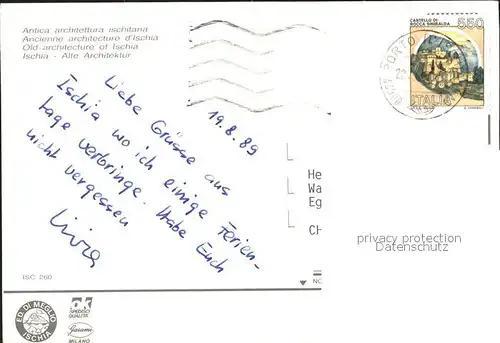 Antica architettura ischitana
Ancienne architecture d'Ischia
Old-architecture of Ischia
Ischia - Alte Architektur
CASTELLO DI
ROCCA SINIBALDA
550
ITALIA
PORTO
19.8.89
Liebe Grüsse aus
Ischia wo ich einige Ferien-
tage verbringe. Habe Euch
nicht vergessen
Livia
He
Wa
Eg
CH
privacy protection
Datenschutz
ISC 260
NC
ED. DI MEGLIO
ISCHIA
OK
SPEDISCI
QUALITA'
Garami
MILANO